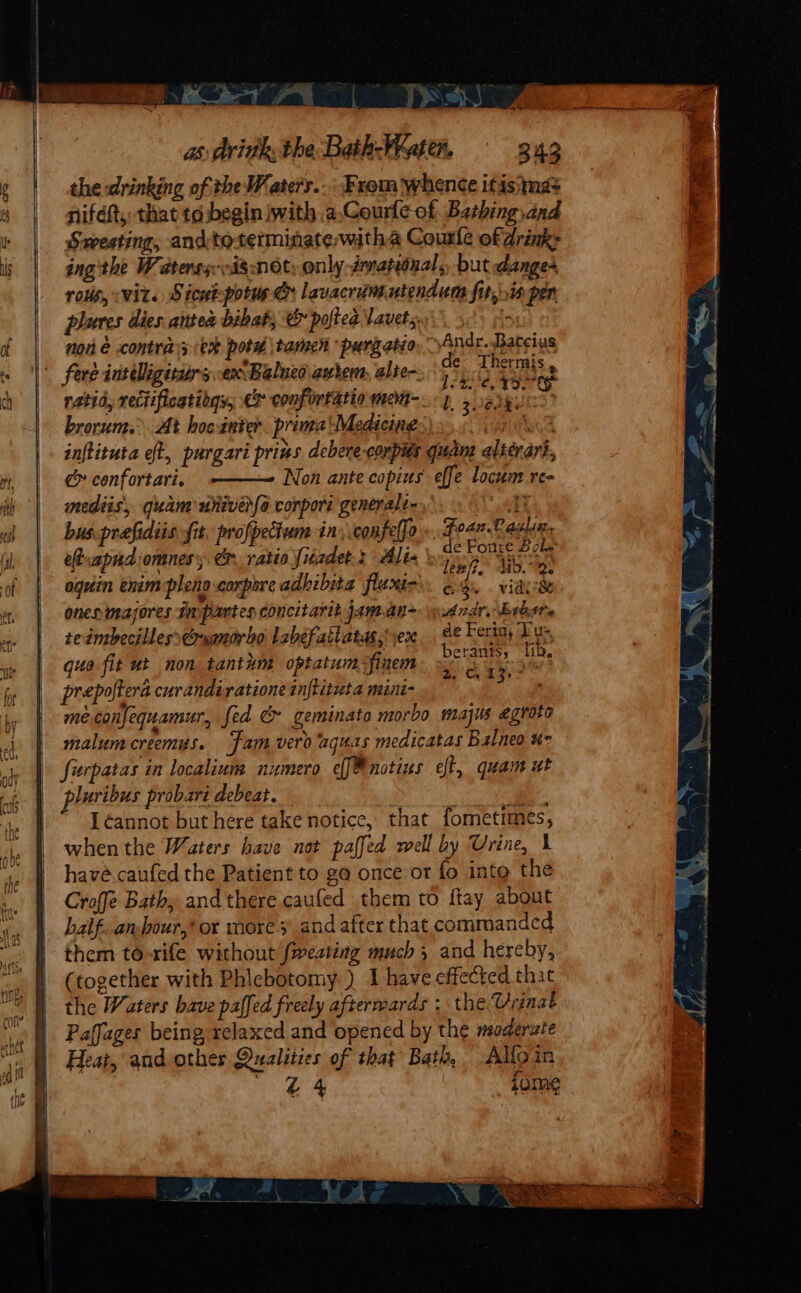 as drink the Bath-Water. 343
the drinking of the Waters. From whence it is ma-
nifeſt, that to begin with a Courſe of Bathing and
Sweating, and to terminate with a Courſe of drink-
ing the Waters, is not only irrational, but dange-
rous, viz. Sicut potus & lavacrum utendum ſit, is per
plures dies antea bibat, & poſtea lavet,
non è contra; ex potu tamen purgatio
fere intelligitur; ex Balneo autem, alte-
ratio, rectificatioq; & confortatio mem-
brorum. At hoc inter prima Medicinæ
inſtituta eſt, purgari prius debere corpus quàm alterari,
& confortari. ——— Non ante copius eſſe locum re-
mediis, quàm univerſa corpori generali-
bus præſidiis ſit proſpectum in confeſſo
eſt apud omnes, & ratio ſuadet: Ali-
oquin enim pleno corpore adhibita fluxi-
ones majores in partes concitarit jam an-
te imbecilles & morbo labefactatas, ex
quo fit ut non tantùm optatum finem
præpoſterâ curandi ratione inſtituta mini-
mè conſequamur, ſed & geminato morbo majus ægroto
malum creemus. Jam verò aquas medicatas Balneo u-
ſurpatas in localium numero eſſe notius eſt, quam ut
pluribus probari debeat.
Andr. Baccius
de Thermis,
l. 2. c.
Joan. Caſim.
de Fonte Bol-
lenſ. lib. 2.
vide &
Andr.
de Ferin, Tu-
beranis, lib.
2. c. 13.
I cannot but here take notice, that ſometimes,
when the Waters have not paſſed well by Urine, I
have cauſed the Patient to go once or ſo into the
Croſſe Bath, and there cauſed them to ſtay about
half an hour, or more; and after that commanded
them to riſe without ſweating much; and hereby,
(together with Phlebotomy) I have effected that
the Waters have paſſed freely afterwards; the Urinal
Paſſages being relaxed and opened by the moderate
Heat, and other Qualities of that Bath. Alſo in
Z 4 ſome